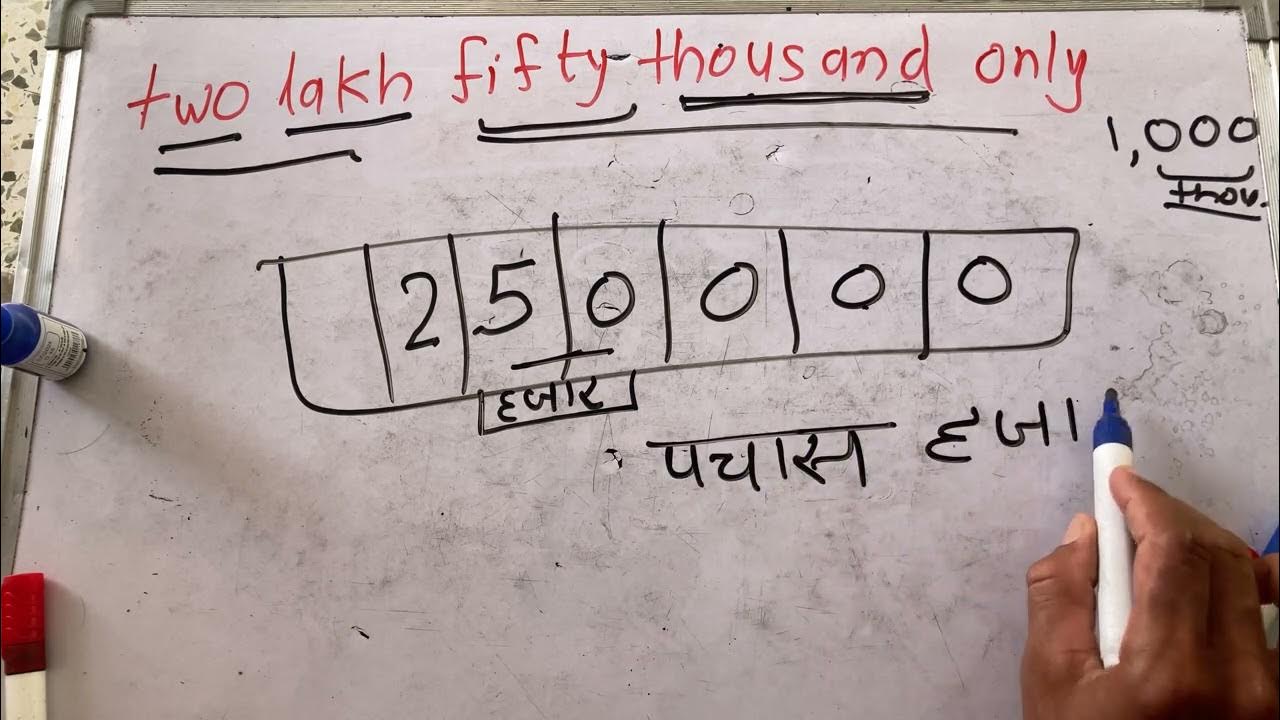 two lakh fifty thousand only
1,000
thou.
2 5 0 0 0 0
हजार
पचास हजा